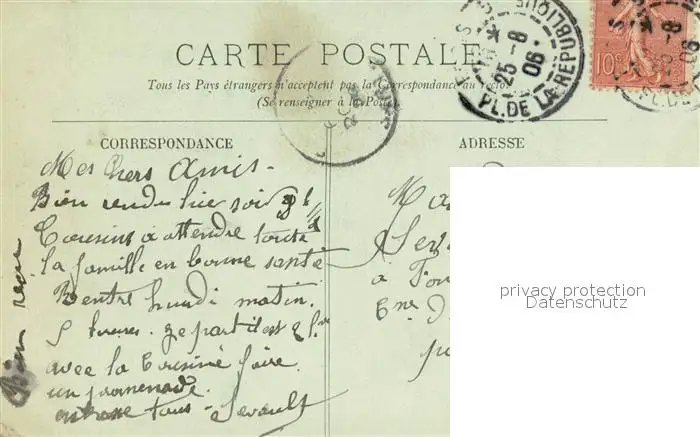 CARTE POSTALE
Tous les Pays étrangers n'acceptent pas la Correspondance au recto.
(Se renseigner à la Poste)
25-8
06
PL. DE LA RÉPUBLIQUE
10c
CORRESPONDANCE
ADRESSE
Mes chers Amis-
Bien rendu hier soir 9h 1/2
Cousins à attendre toute
la famille en bonne santé
Rentre lundi matin.
5 heures. je part il est 2h
avec la Cousine faire
un promenade.
tous - Servault
Bien reçu
à
privacy protection
Datenschutz